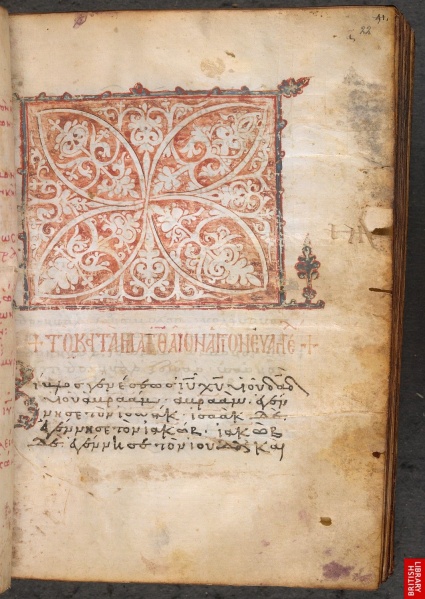 41.
22
+ ΤΟ ΚΑΤΑ ΜΑΤΘΑΙΟΝ ΑΓΙΟΝ ΕΥΑΓΓΕ +
Βίβλος γενέσεως ἰυ χυ υἱοῦ δαδ
υἱοῦ ἀβραάμ. ἀβραὰμ ἐγέν
νησε τὸν ἰσαάκ. ἰσαὰκ δὲ
ἐγέννησε τὸν ἰακώβ. ἰακὼβ
δὲ ἐγέννησε τὸν ἰούδαν καὶ
BRITISH
LIBRARY